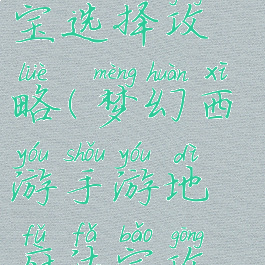 宝选择攻
lüè mèng huàn xī
略(梦幻西
yóu shǒu yóu dì
游手游地
fǔ fǎ bǎo gōng
府法宝攻